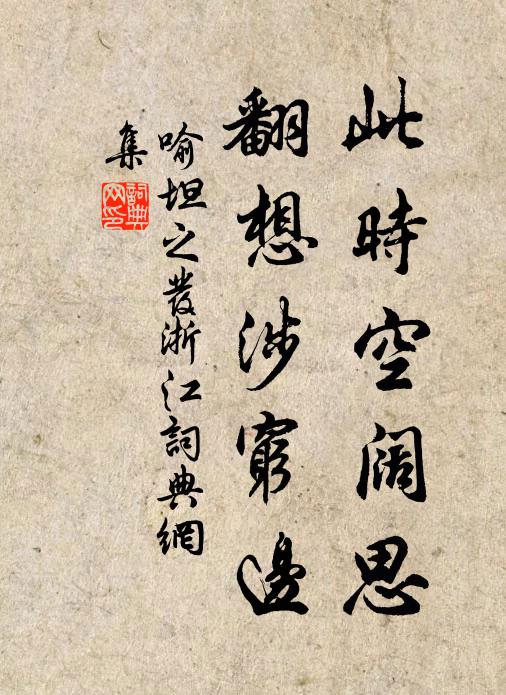 此時空闊思
翻想涉窮邊
喻坦之發浙江詞典網
集
詞典網印